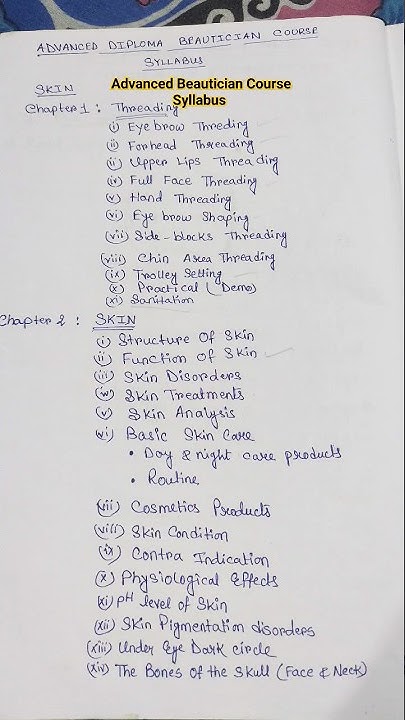 ADVANCED DIPLOMA BEAUTICIAN COURSE
SYLLABUS
SKIN
Advanced Beautician Course
Syllabus
Chapter 1 : Threading
(i) Eyebrow Threding
(ii) Forhead Threading
(ii) Upper Lips Threading
(iv) Full Face Threading
(v) Hand Threading
(vi) Eye brow Shaping
(vii) Side-blocks Threading
(viii) Chin Area Threading
(ix) Trolley Setting
(x) Practical (Demo)
(xi) Sanitation
Chapter 2 : SKIN
(i) Structure Of Skin
(ii) Function Of Skin
(iii) Skin Disorders
(iv) Skin Treatments
(v) Skin Analysis
(vi) Basic Skin Care
• Day & night care products
• Routine
(vii) Cosmetics Products
(viii) Skin Condition
(ix) Contra Indication
(x) Physiological Effects
(xi) pH level of Skin
(xii) Skin Pigmentation disorders
(xiii) Under Eye Dark circle
(xiv) The Bones Of the Skull (Face & Neck)